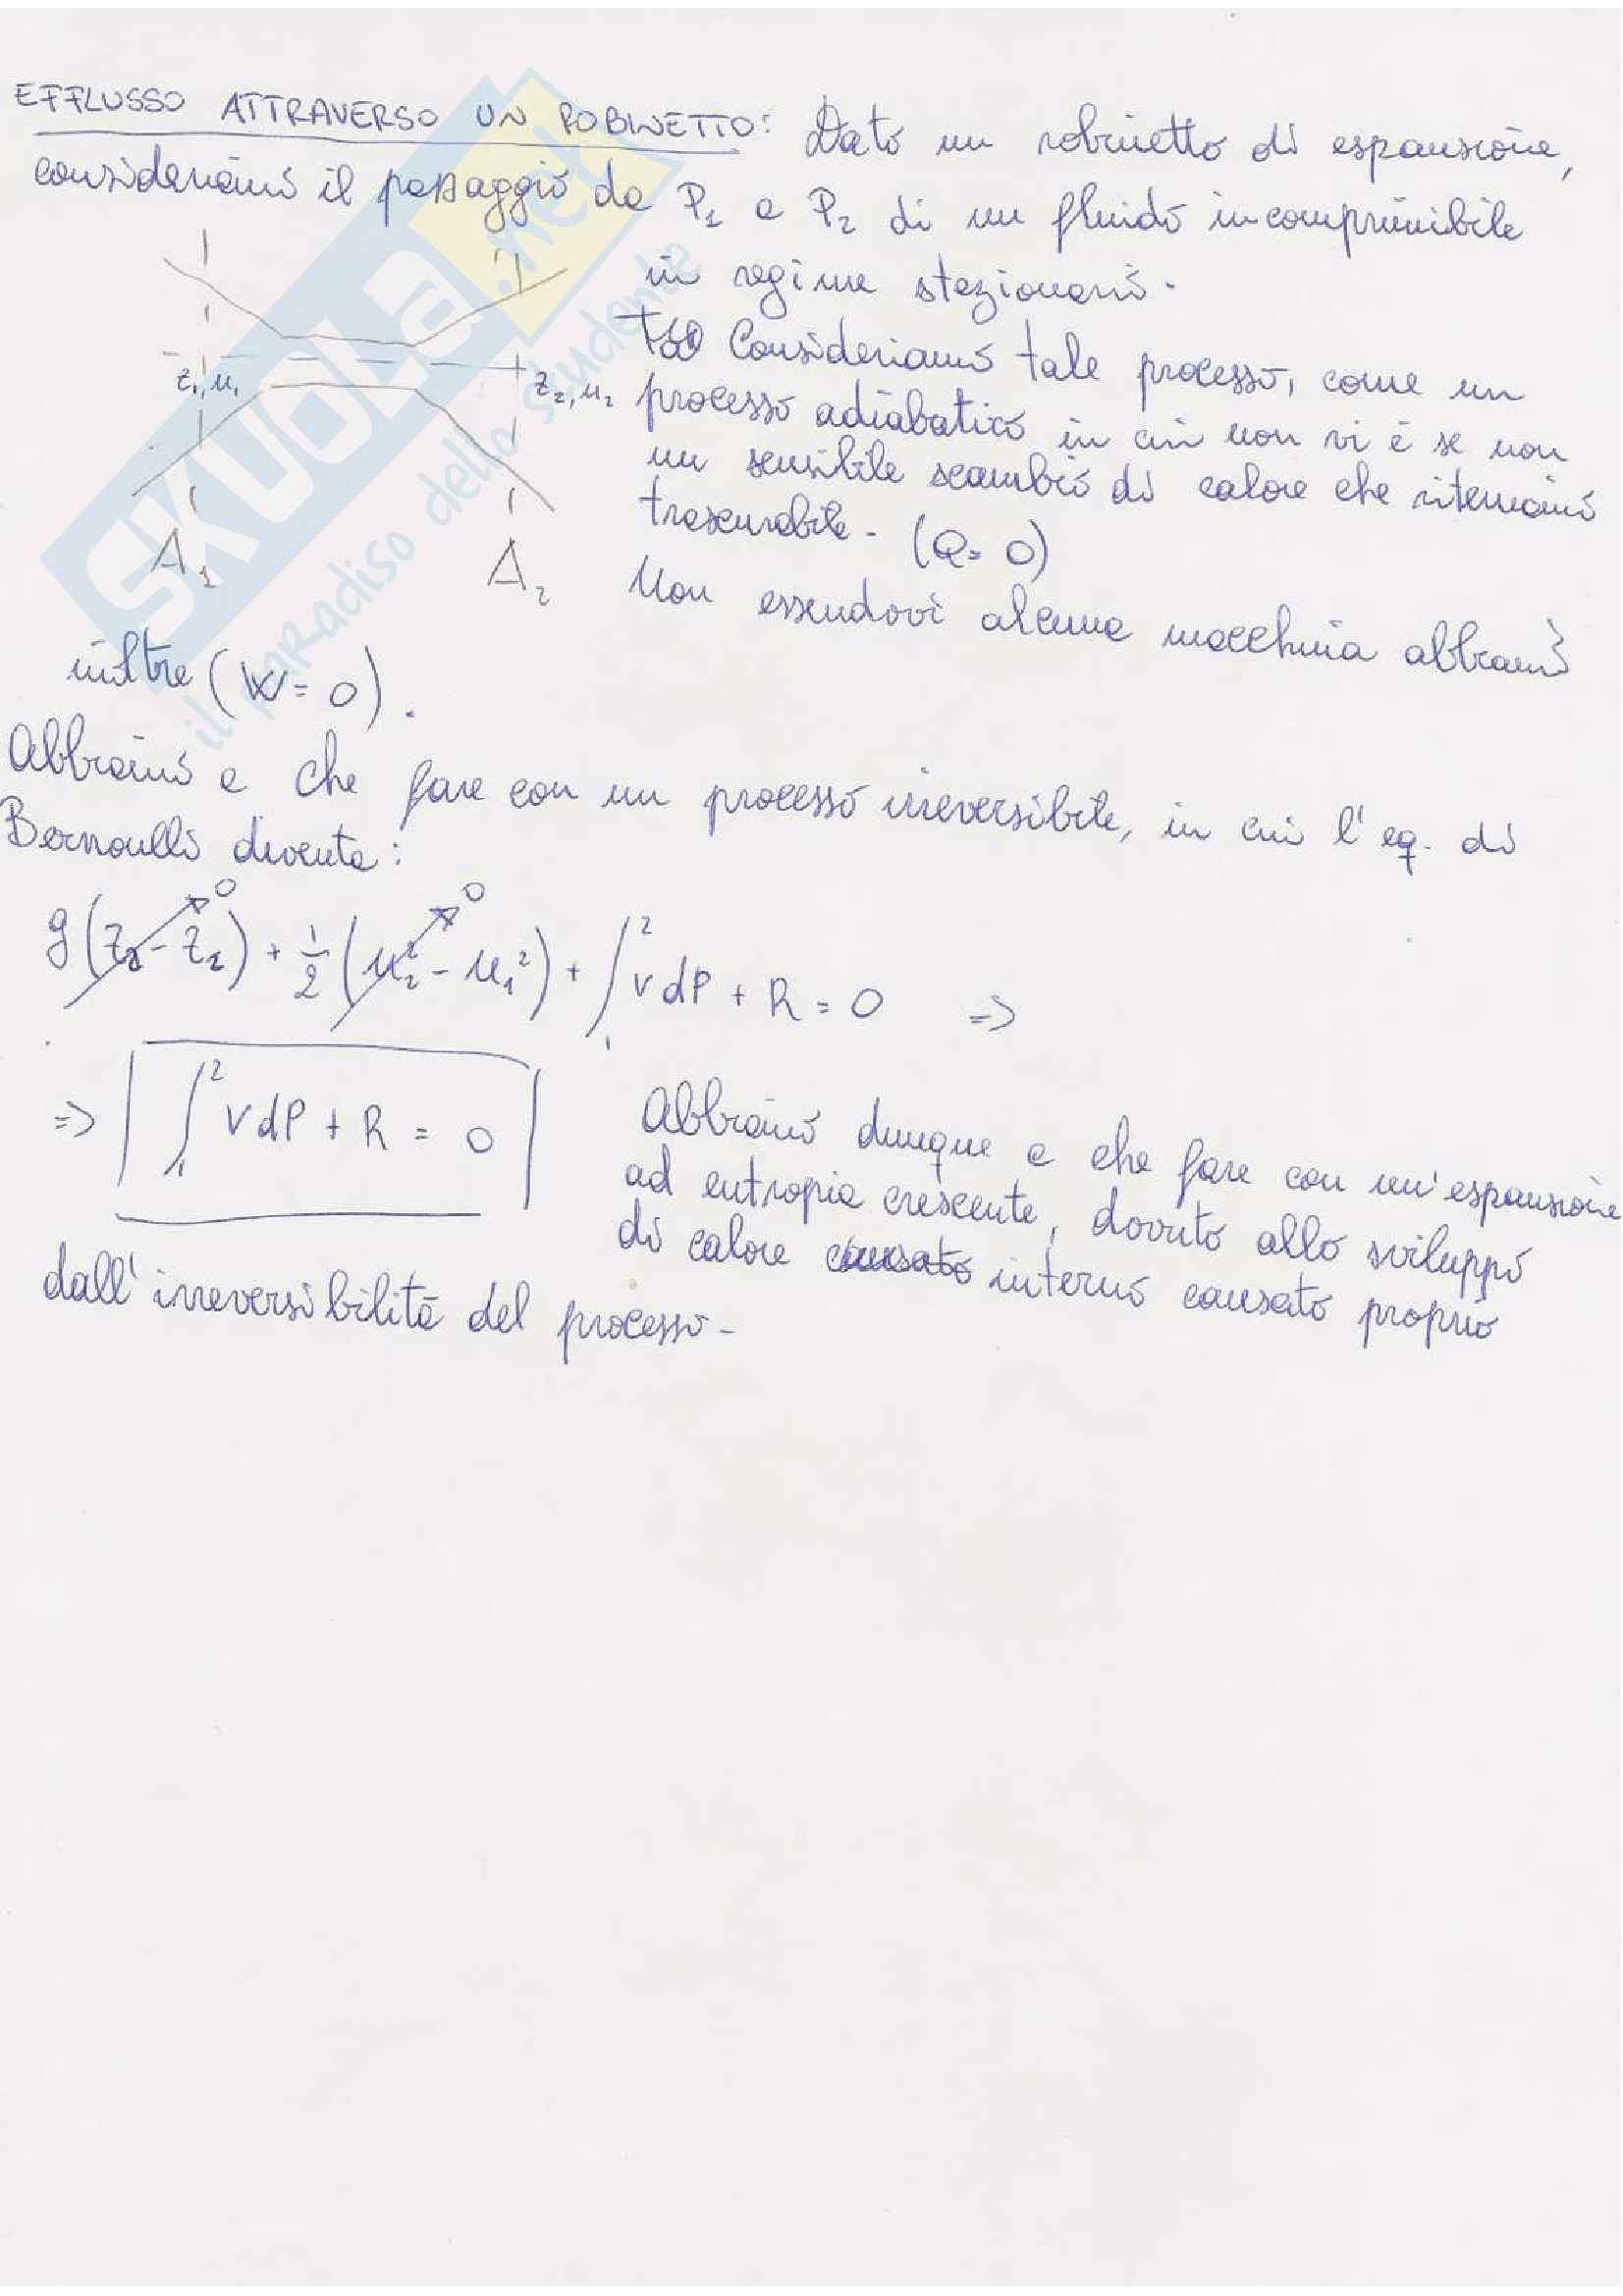 EFFLUSSO ATTRAVERSO UN ROBINETTO: Dato un robinetto di espansione,
consideriamo il passaggio da P₁ a P₂ di un fluido incomprimibile
in regime stazionario.
Consideriamo tale processo, come un
processo adiabatico in cui non vi è se non
un sensibile scambio di calore che riteniamo
trascurabile. (Q=0)
Non essendovi alcuna macchina abbiamo
z₁, u₁
z₂, u₂
A₁
A₂
inoltre (W=0).
Abbiamo a che fare con un processo irreversibile, in cui l'eq. di
Bernoulli diventa:
g(z₂-z₁)→0 + ½(u₂²-u₁²)→0 + ∫₁² vdP + R = 0 =>
=> ∫₁² vdP + R = 0
Abbiamo dunque a che fare con un'espansione
ad entropia crescente, dovuto allo sviluppo
di calore causato interno causato proprio
dall'irreversibilità del processo.
SKUOLA.net
il paradiso dello studente